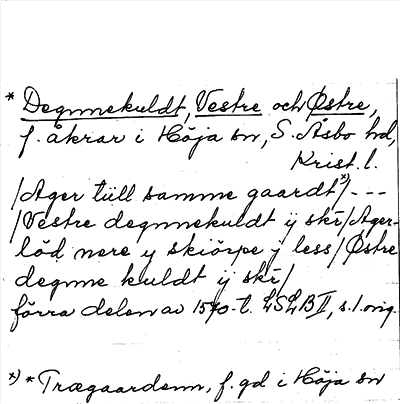 * Degnnekuldt, Vestre och Østre,
f. åkrar i Höja sn, S. Åsbo hd,
Krist. l.
/Ager tüll samme gaardt*)/---
/Vestre degnnekuldt ÿ skr̄/Ager-
löd nere y skiörpe y less/Østre
degnne kuldt ÿ skr̄/
förra delen av 1570-t. LSLB II, s. 1 orig.
*) *Trægaardenn, f. gd i Höja sn